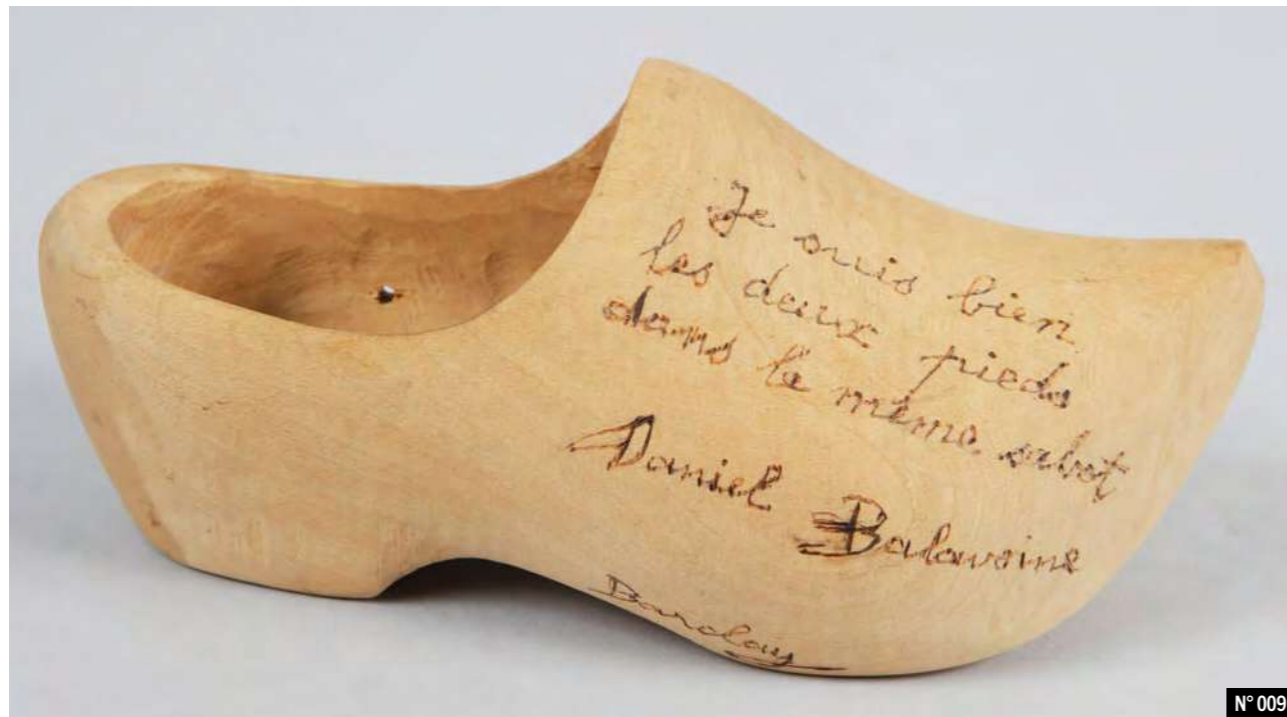 Je suis bien
les deux pieds
dans le même sabot
Daniel Balavoine
Barclay
N° 009